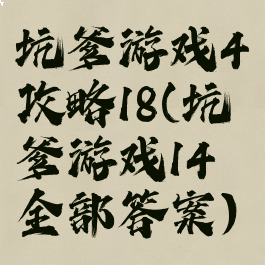 坑爹游戏4
攻略18(坑
爹游戏14
全部答案)